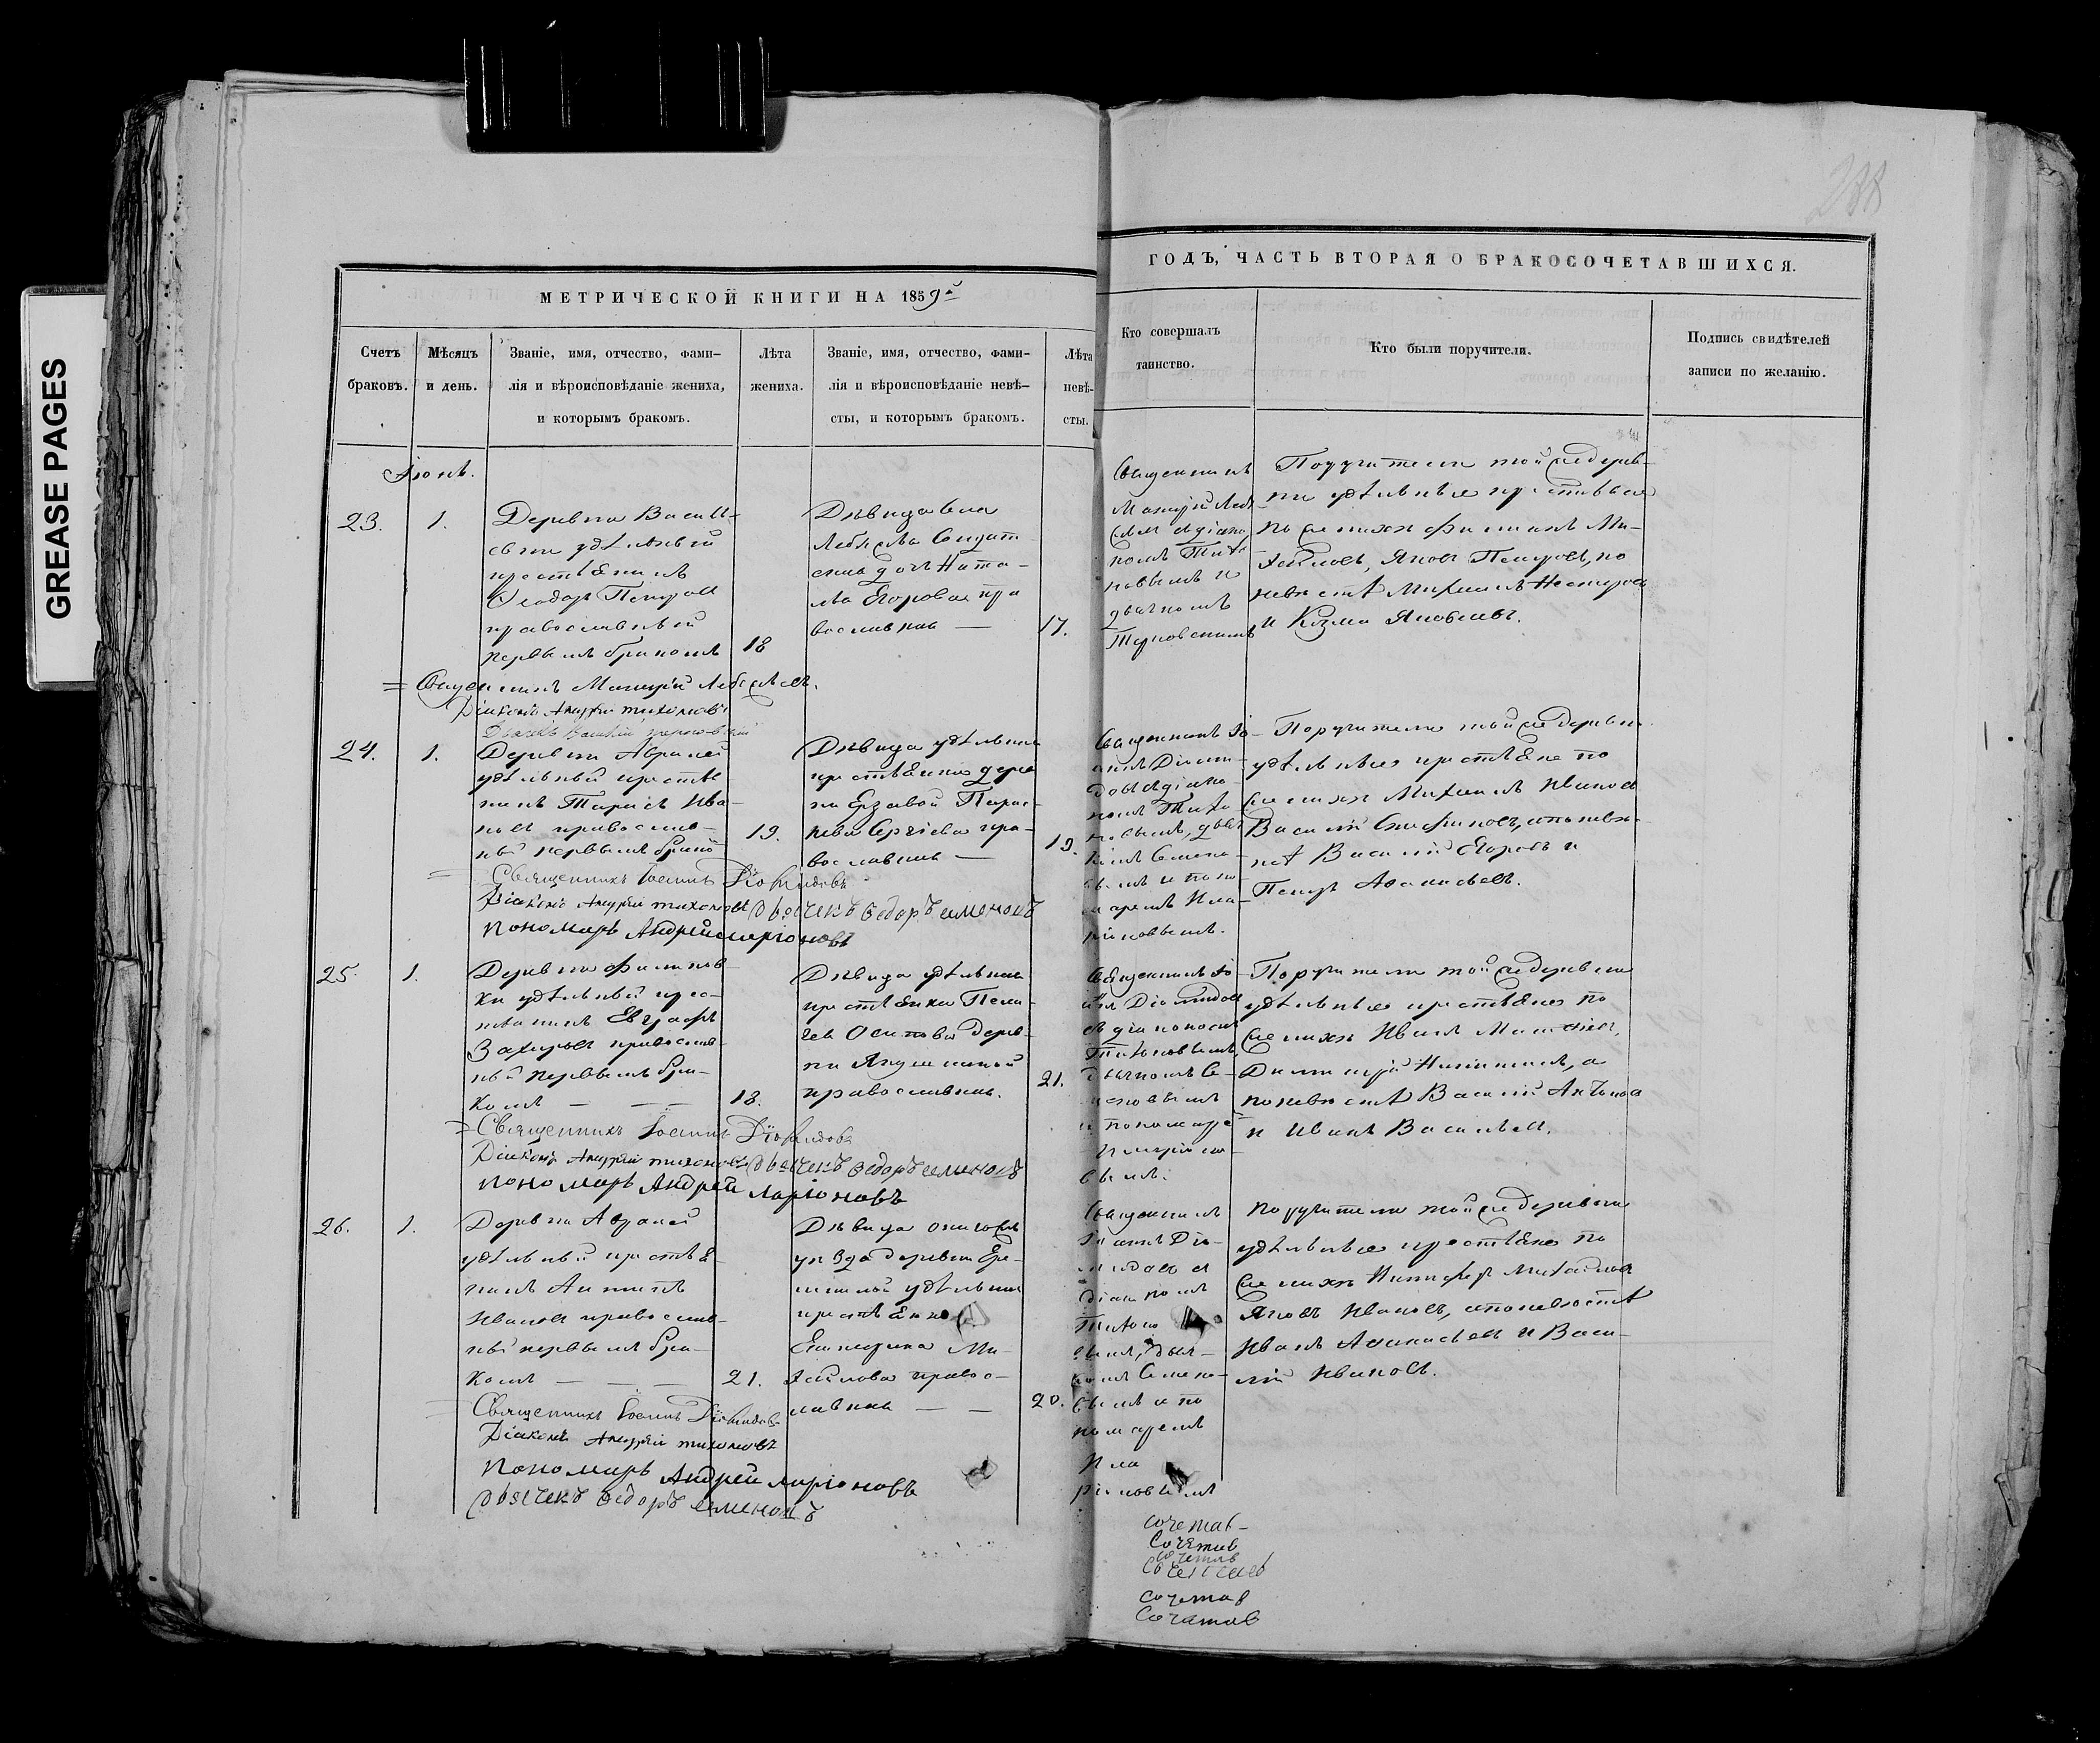 GREASE PAGES
288
МЕТРИЧЕСКОЙ КНИГИ НА 1859й
ГОДЪ, ЧАСТЬ ВТОРАЯ О БРАКОСОЧЕТАВШИХСЯ.
Счетъ
браковъ.
Мѣсяцъ
и день.
Званіе, имя, отчество, фами-
лія и вѣроисповѣданіе жениха,
и которымъ бракомъ.
Лѣта
жениха.
Званіе, имя, отчество, фами-
лія и вѣроисповѣданіе невѣ-
сты, и которымъ бракомъ.
Лѣта
невѣ-
сты.
Кто совершалъ
таинство.
Кто были поручители.
Подпись свидѣтелей
записи по желанію.
Іюнь.
23.
1.
Деревни Василь-
евки удѣльный
крестьянинъ
Ѳеодоръ Петровъ
православный
первымъ бракомъ
18
Дѣвица села
дочь Ната-
лья Егорова пра
вославная —
17.
Священникъ
съ діако-
номъ Тихо-
новымъ и
дьячкомъ
Терновскимъ
Поручители той же дерев-
ни удѣльные крестьяне
по женихѣ Филиппъ Ми-
хайловъ, Яковъ Петровъ, по
невѣстѣ Михаилъ Нестеровъ
и Козма Яковлевъ.
Діаконъ Андрей Тихоновъ
24.
1.
Деревни
удѣльный крестья
нинъ Тарасъ Ива-
новъ православ-
ный первымъ брако
19.
Дѣвица удѣльная
крестьянка дерев
ни Парас-
кева Сергіева пра-
вославная —
19.
Священникъ Іо-
аннъ Діоми-
довъ съ діако-
номъ Тихо-
новымъ, дьяч
комъ Семено-
вымъ и поно-
маремъ Ила-
ріоновымъ.
Поручители той же деревни
удѣльные крестьяне по
женихѣ Михаилъ Ивановъ
Василій Стефановъ, а по невѣ-
стѣ Василій Егоровъ и
Петръ Аѳанасьевъ.
Священникъ Іоаннъ Діомидовъ
Діаконъ Андрей Тихоновъ Дьячекъ Ѳедоръ Семеновъ
Пономарь Андрей Ларіоновъ
25.
1.
Деревни Филипов-
ки удѣльный крес-
тьянинъ Евграфъ
Захаровъ православ-
ный первымъ бра-
комъ — — —
18.
Дѣвица удѣльная
крестьянка Пела-
гея Осипова дерев-
ни
православная.
21.
Священникъ Іо-
аннъ Діомидовъ
съ діакономъ
Тихоновымъ,
дьячкомъ Се-
меновымъ
и пономаре
Иларіоно-
вымъ.
Поручители той же деревни
удѣльные крестьяне по
женихѣ Иванъ
Димитрій Никитинъ, а
по невѣстѣ Василій Антонов
и Иванъ Васильевъ.
Священникъ Іоаннъ Діомидовъ
Діаконъ Андрей Тихоновъ Дьячекъ Ѳедоръ Семеновъ
Пономарь Андрей Ларіоновъ
26.
1.
Деревни
удѣльный крестья
нинъ Антипъ
Ивановъ православ-
ный первымъ бра-
комъ — — —
21.
Дѣвица
уѣзда деревни Ере-
удѣльная
крестьянка
Екатерина Ми-
хайлова правос-
лавная — —
20.
Священникъ
Іоаннъ Діо-
мидовъ съ
діакономъ
Тихоно
вымъ, дьяч-
комъ Семено-
вымъ и по
номаремъ
Ила
ріоновымъ
Поручители той же деревни
удѣльные крестьяне по
женихѣ Никифоръ Михайловъ
Яковъ Ивановъ, а по невѣстѣ
Иванъ Аѳанасьевъ и Васи-
лій Ивановъ.
Священникъ Іоаннъ Діомидовъ
Діаконъ Андрей Тихоновъ
Пономарь Андрей Ларіоновъ
Дьячекъ Ѳедоръ Семеновъ
сочетав-
Сочетав
сочетав
Сочетав
сочетав
Сочетав